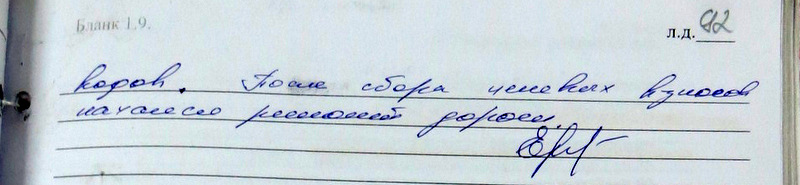 Бланк 1.9.
л.д. 92
кодов. После сбора целевых взносов
начался ремонт дороги.